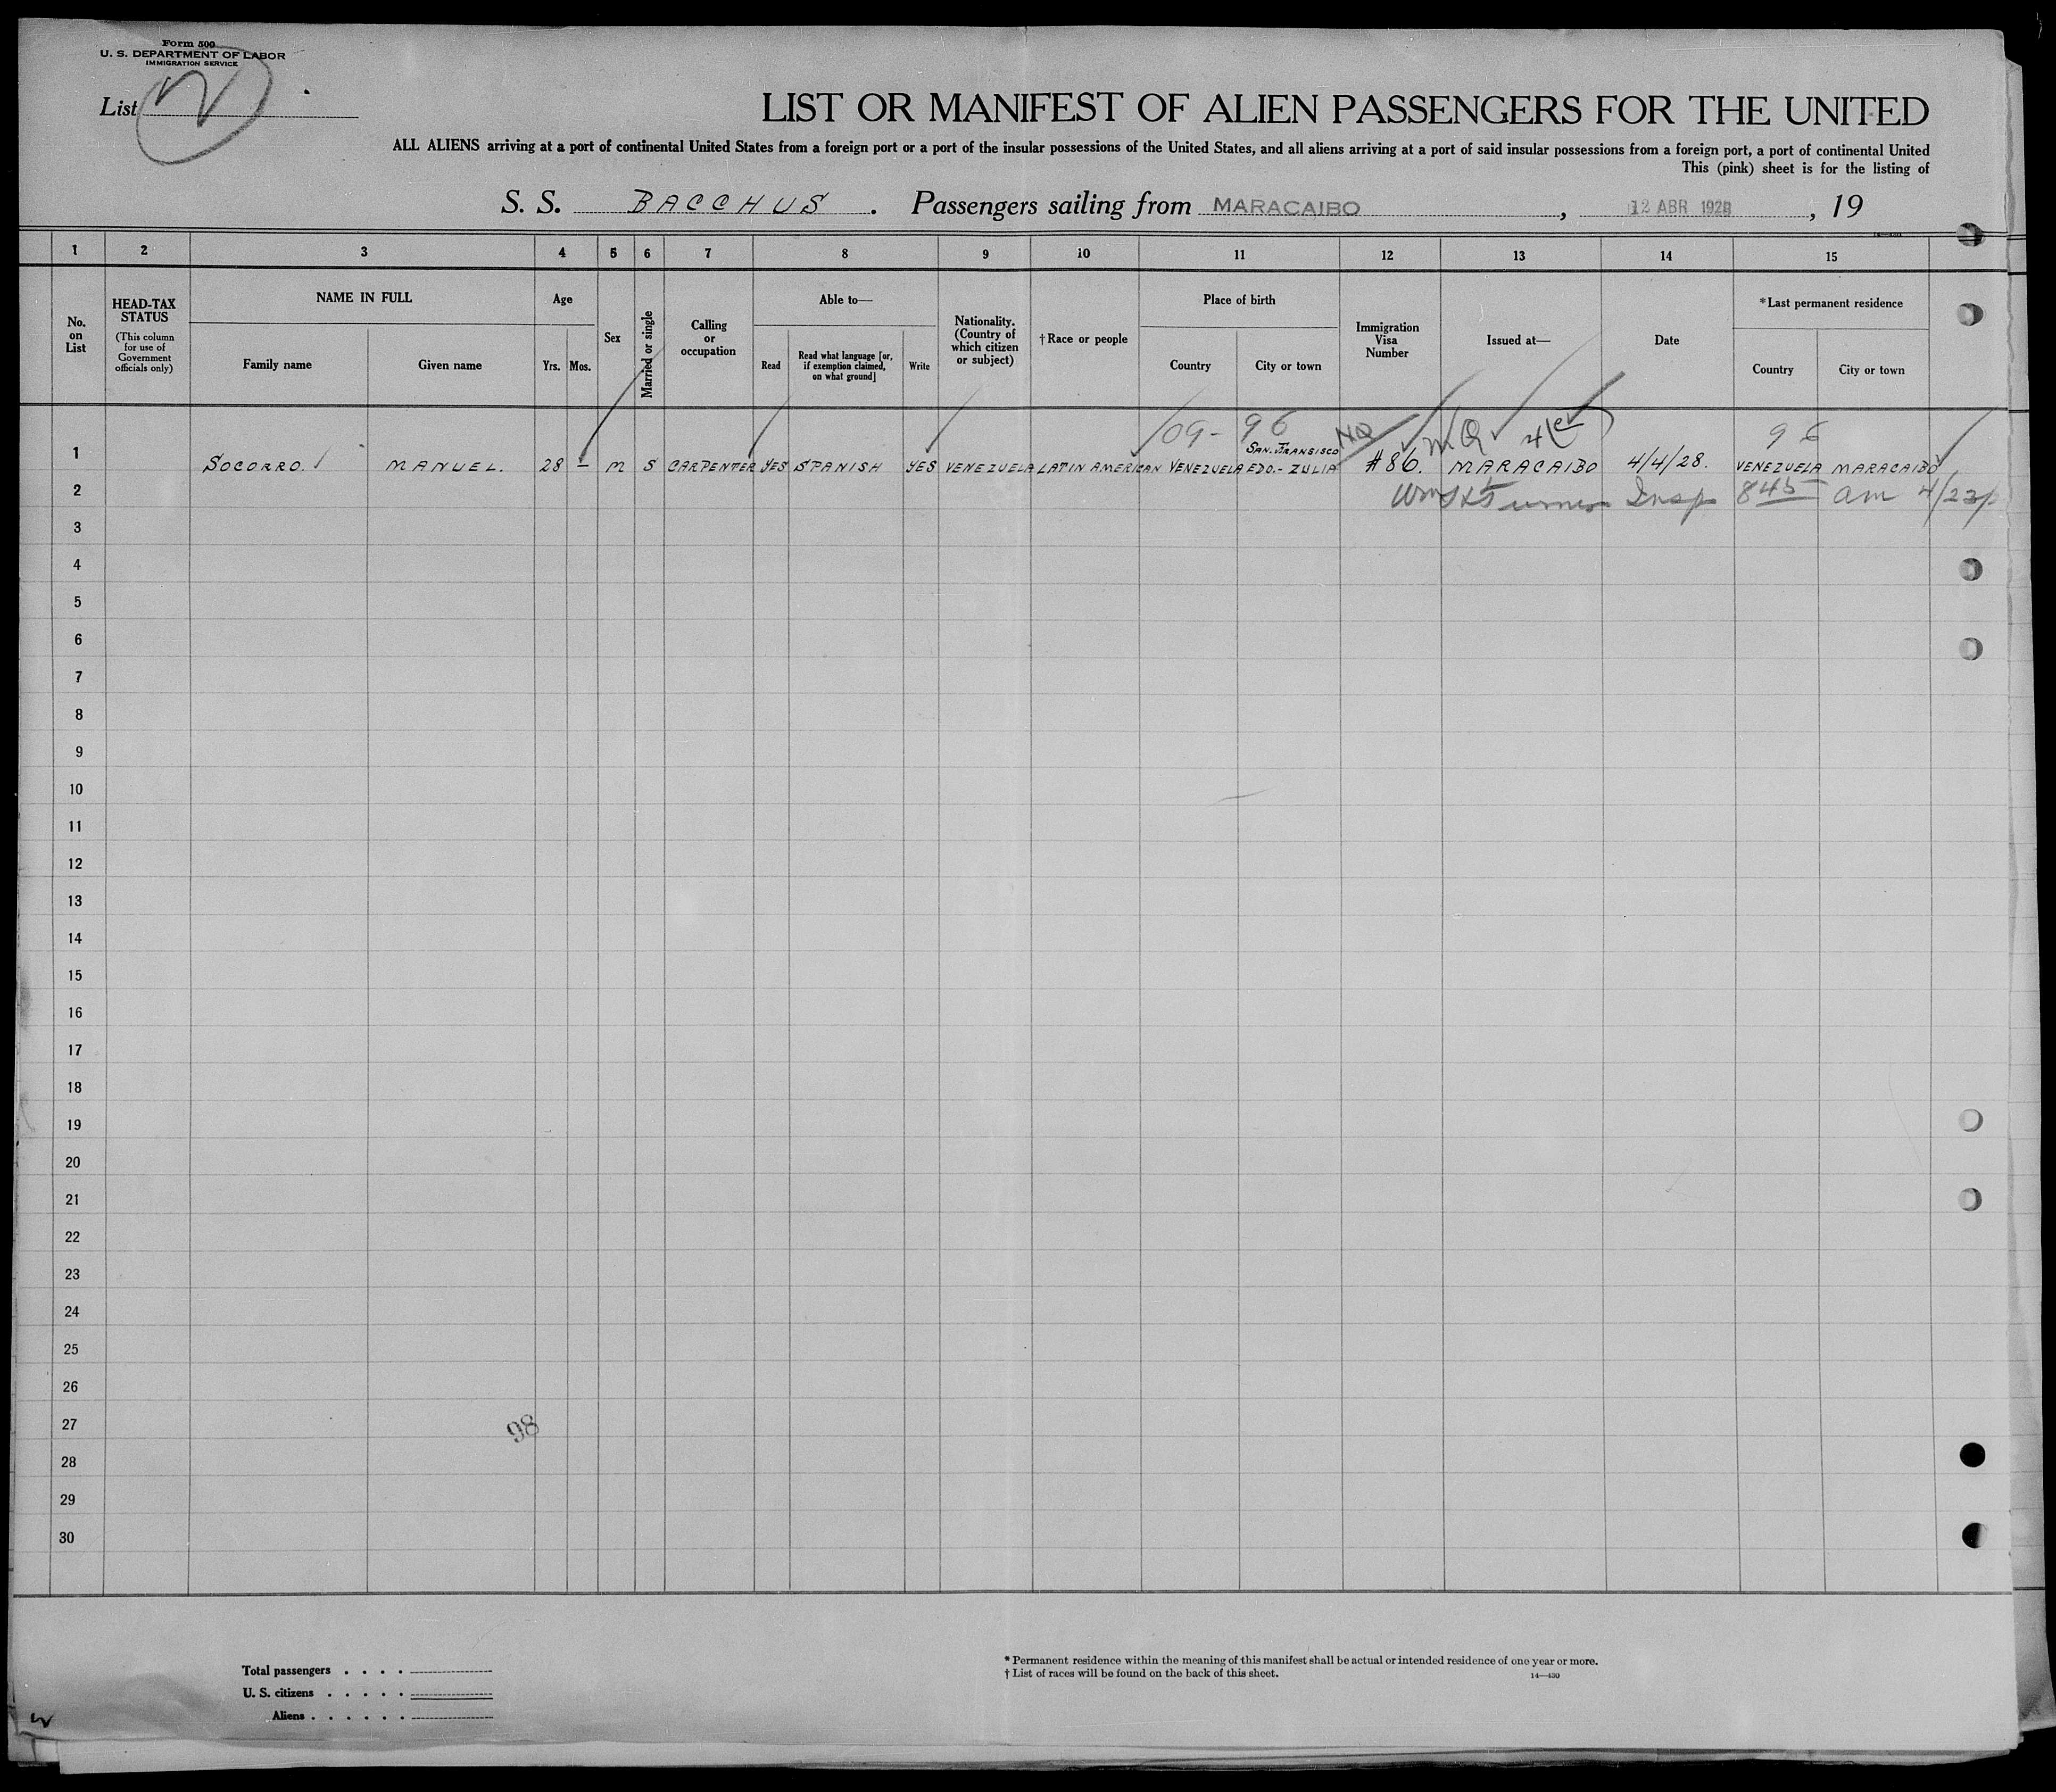 Form 500
U. S. DEPARTMENT OF LABOR
IMMIGRATION SERVICE
List
LIST OR MANIFEST OF ALIEN PASSENGERS FOR THE UNITED
ALL ALIENS arriving at a port of continental United States from a foreign port or a port of the insular possessions of the United States, and all aliens arriving at a port of said insular possessions from a foreign port, a port of continental United
This (pink) sheet is for the listing of
S. S. BACCHUS . Passengers sailing from MARACAIBO , 12 ABR 1928 , 19
1 2 3 4 5 6 7 8 9 10 11 12 13 14 15
No. on List
HEAD-TAX STATUS
(This column for use of Government officials only)
NAME IN FULL
Family name Given name
Age
Yrs. Mos.
Sex
Married or single
Calling or occupation
Able to—
Read
Read what language [or, if exemption claimed, on what ground]
Write
Nationality. (Country of which citizen or subject)
†Race or people
Place of birth
Country City or town
Immigration Visa Number
Issued at—
Date
*Last permanent residence
Country City or town
09- 96 NQ 96
1 SOCORRO. MANUEL. 28 – M S CARPENTER YES SPANISH YES VENEZUELA LATIN AMERICAN VENEZUELA SAN.FRANSISCO EDO.- ZULIA #86. MARACAIBO 4/4/28. VENEZUELA MARACAIBO
2 Turner Insp 845 am 4/23/
3
4
5
6
7
8
9
10
11
12
13
14
15
16
17
18
19
20
21
22
23
24
25
26
27
98
28
29
30
Total passengers . . . .
U. S. citizens . . . . .
Aliens . . . . . .
* Permanent residence within the meaning of this manifest shall be actual or intended residence of one year or more.
† List of races will be found on the back of this sheet.
14—430